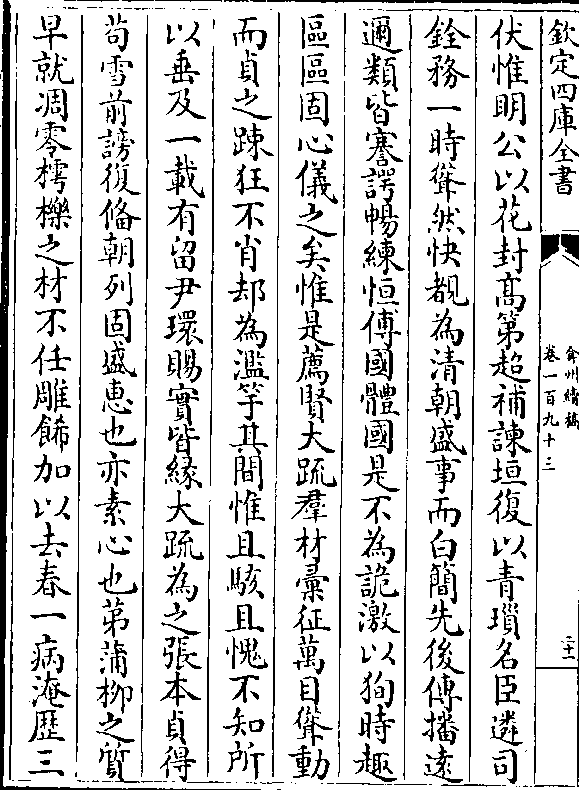 欽定四庫全書
弇州續稿
卷一百九十三
二十一
伏惟明公以花封髙第超補諫垣復以青瑣名臣遴司
銓務一時聳然快覩為清朝盛事而白簡先後傳播逺
邇類皆謇諤暢練恒傅國體國是不為詭激以狥時趣
區區固心儀之矣惟是薦賢大疏羣材彚征萬目聳動
而貞之踈狂不肖却為濫竽其間惟且駭且愧不知所
以垂及一載有留尹環賜實皆緣大疏為之張本貞得
苟雪前謗復偹朝列固盛惠也亦素心也苐蒲柳之質
早就凋零樗櫟之材不任雕餙加以去春一病淹歴三